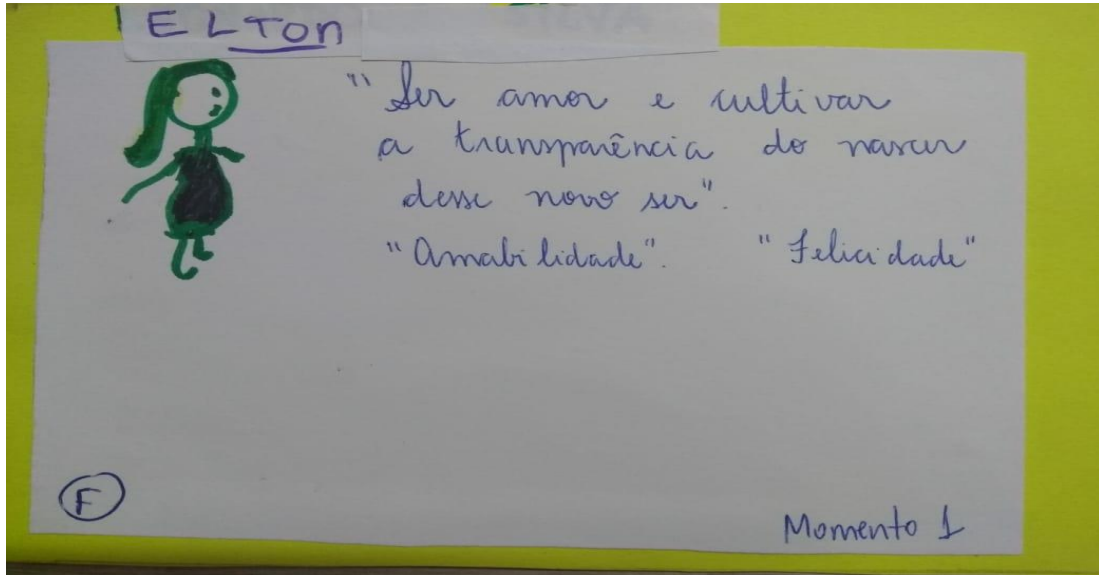 ELTON
"Ser amor e cultivar
a transparência do nascer
desse novo ser".
"Amabilidade". "Felicidade"
F
Momento 1